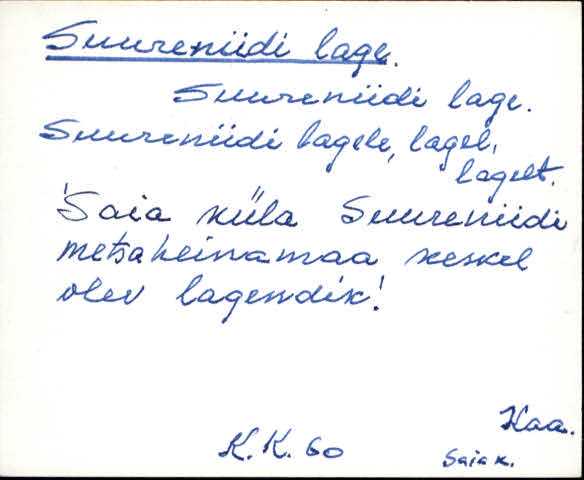 Suureniidi lage.
Suureniidi lage.
Suureniidi lagele, lagel,
lagelt.
'Saia küla Suureniidi
metsaheinamaa keskel
olev lagendik!
Kaa.
K.K. 60
Saia k.